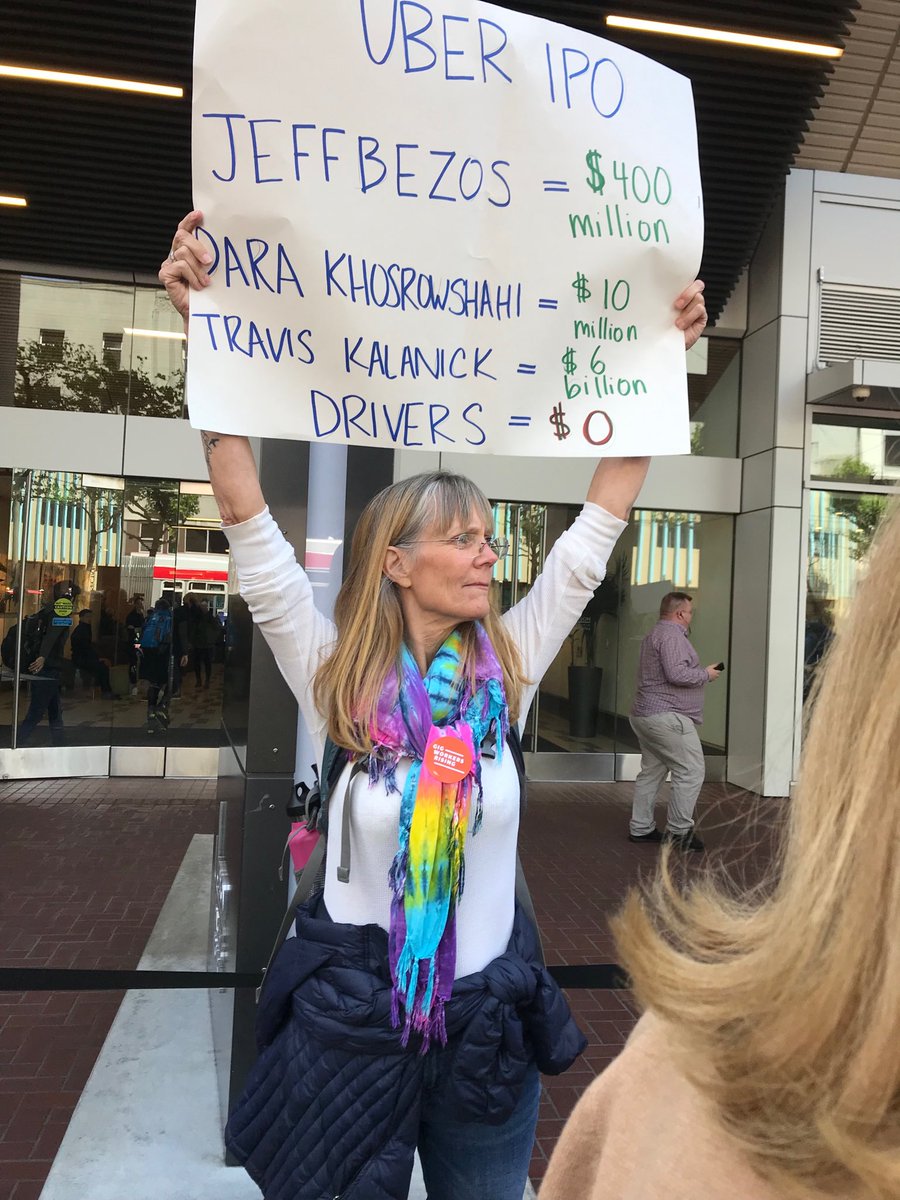 UBER IPO
JEFF BEZOS = $400
million
DARA KHOSROWSHAHI = $10
million
TRAVIS KALANICK = $6
billion
DRIVERS = $0
GIG
WORKERS
RISING